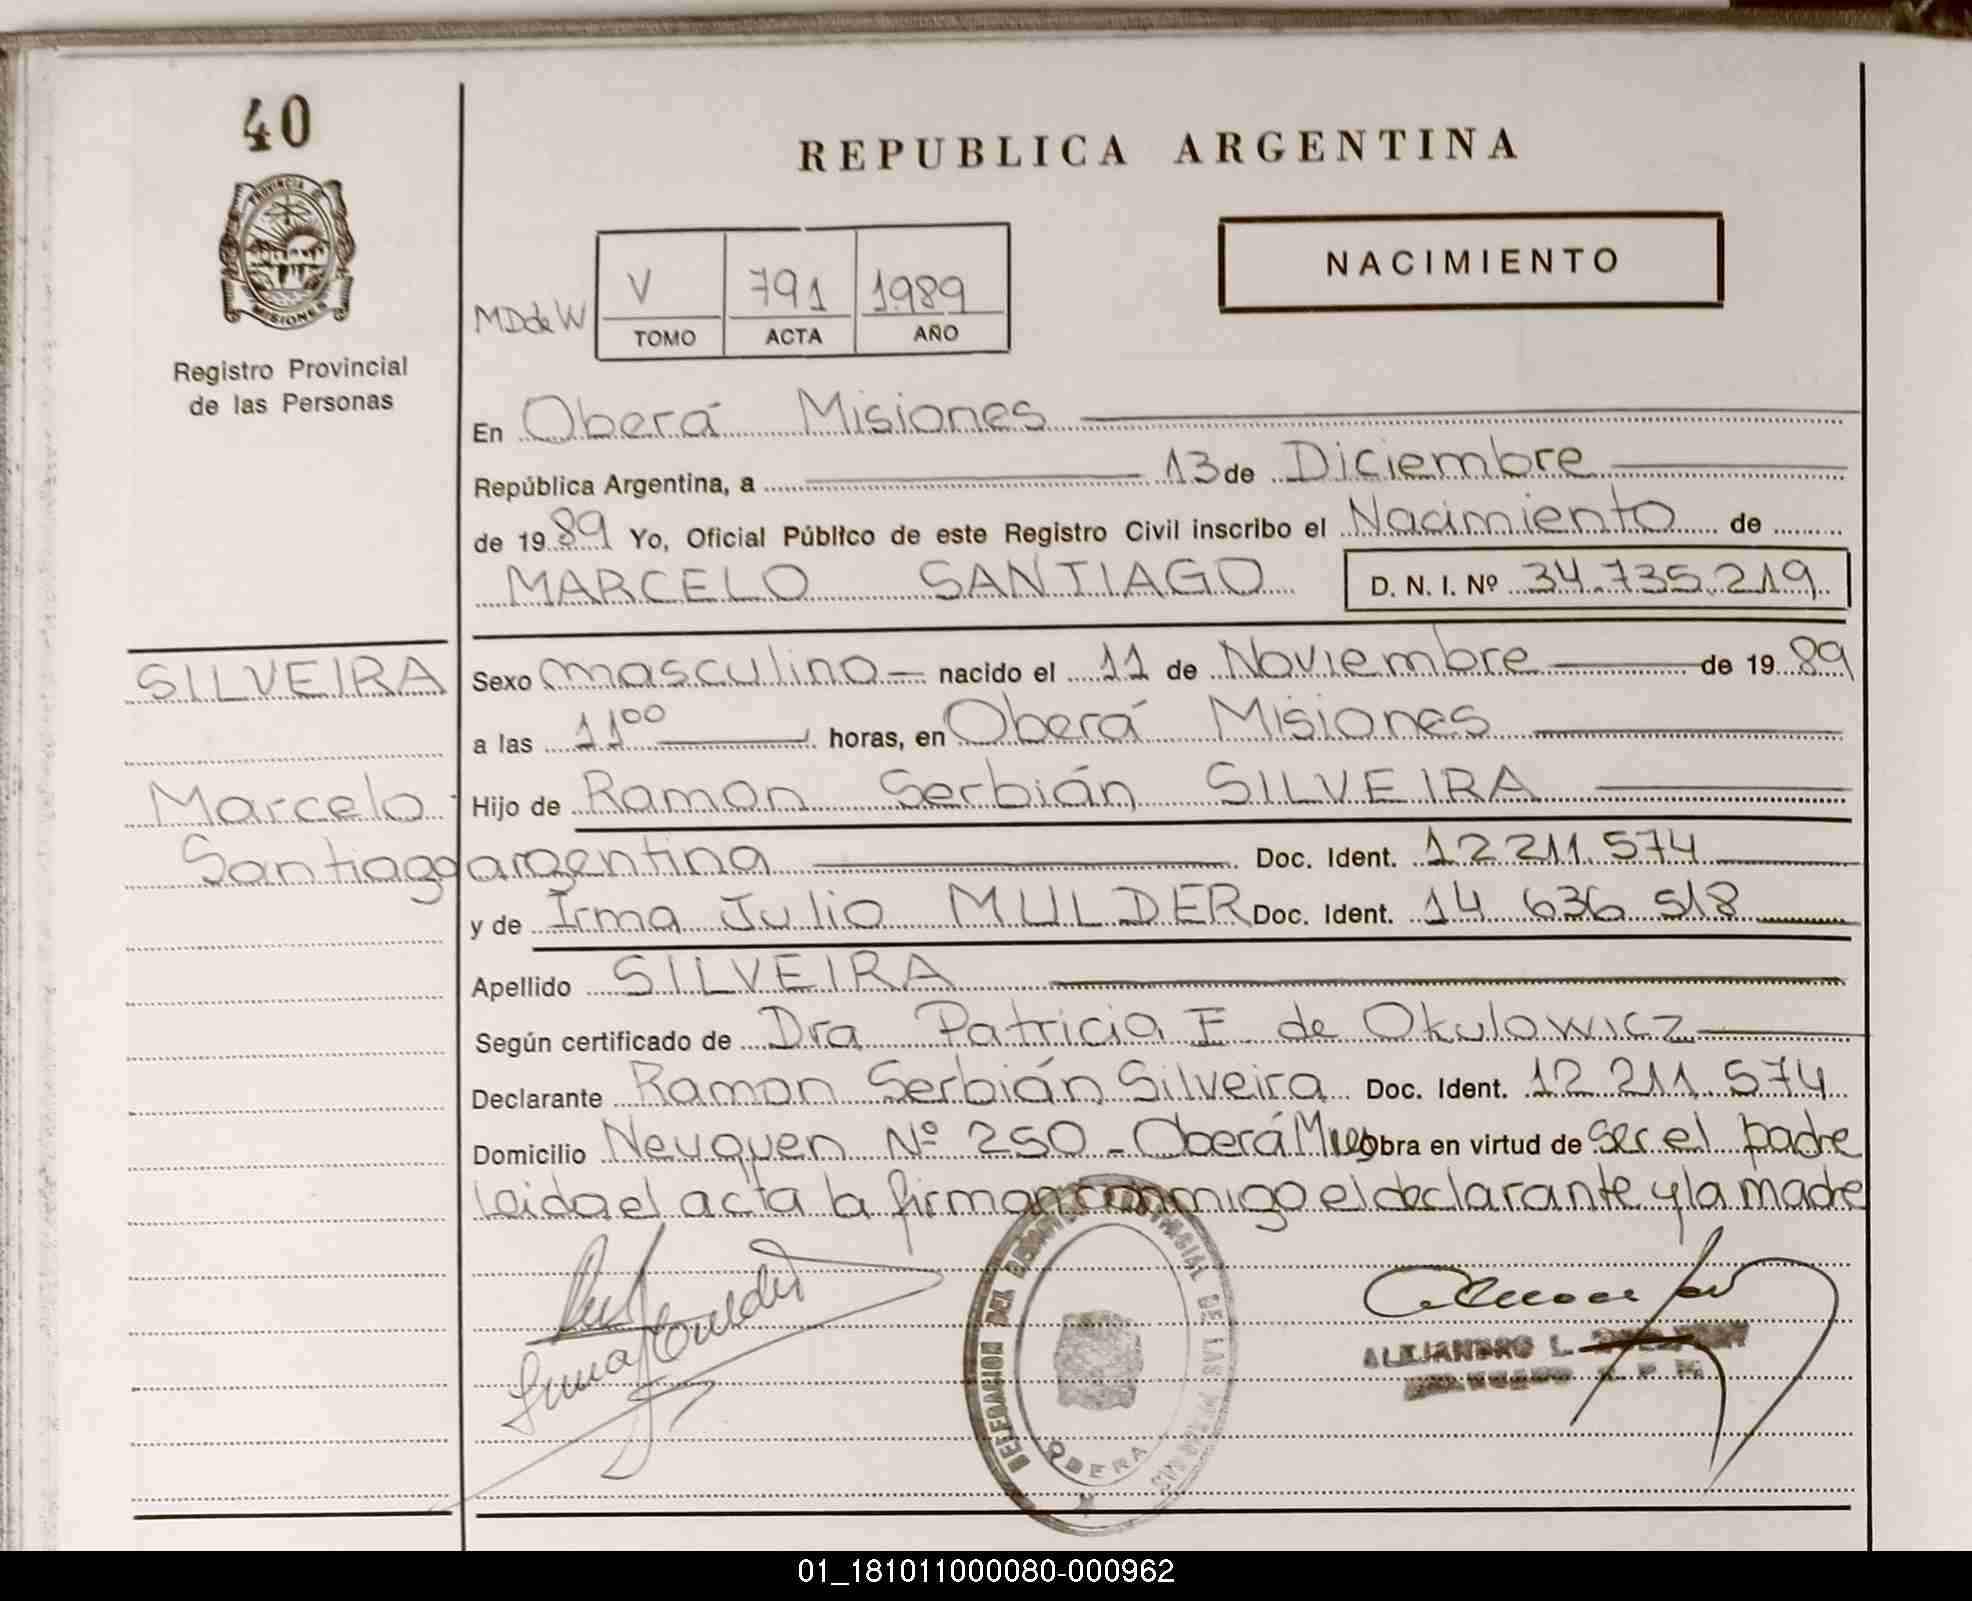 40
PROVINCIA DE
MISIONES
Registro Provincial
de las Personas
REPUBLICA ARGENTINA
NACIMIENTO
MDdeW
V 791 1989
TOMO ACTA AÑO
En Oberá Misiones
República Argentina, a 13 de Diciembre
de 1989 Yo, Oficial Público de este Registro Civil inscribo el Nacimiento de
MARCELO SANTIAGO D. N. I. Nº 34.735.219
SILVEIRA
Marcelo
Santiago
Sexo masculino nacido el 11 de Noviembre de 1989
a las 11 00 horas, en Oberá Misiones
Hijo de Ramon Serbián SILVEIRA
argentina Doc. Ident. 12 211 574
y de Irma Julia MULDER Doc. Ident. 14 636 518
Apellido SILVEIRA
Según certificado de Dra Patricia F de Okulowicz
Declarante Ramon Serbián Silveira Doc. Ident. 12 211 574
Domicilio Neuquen Nº 250 - Oberá Mnes Obra en virtud de ser el padre
Leida el acta la firman conmigo el declarante y la madre
Irma J Mulder
DELEGACION DEL REGISTRO PROVINCIAL DE LAS PERSONAS
OBERA
ALEJANDRO L.
01_181011000080-000962